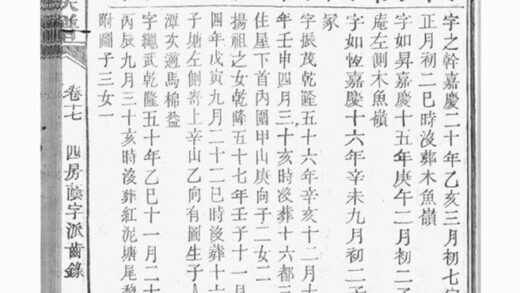 字之幹嘉慶二十年乙亥三月初七
正月初二巳時沒葬木魚嶺
字如昇嘉慶十五年庚午二月初二
庵左側木魚嶺
字如恆嘉慶十六年辛未九月初二子
家
字振茂乾隆五十六年辛亥十二月十
年壬申四月三十亥時沒葬十六都三
住屋下首內圍甲山庚向子二女二
揚祖之女乾隆五十七年壬子十一月
四年戊寅九月二十二巳時沒葬十
子塘左側上辛山乙向有圖生子
潭次適馬棉益
字繩武乾隆五十年乙巳十一月二十
丙辰九月三十亥時沒葬紅泥塘尾黎
附圖子三女一
卷十七
四房陰字派齒錄